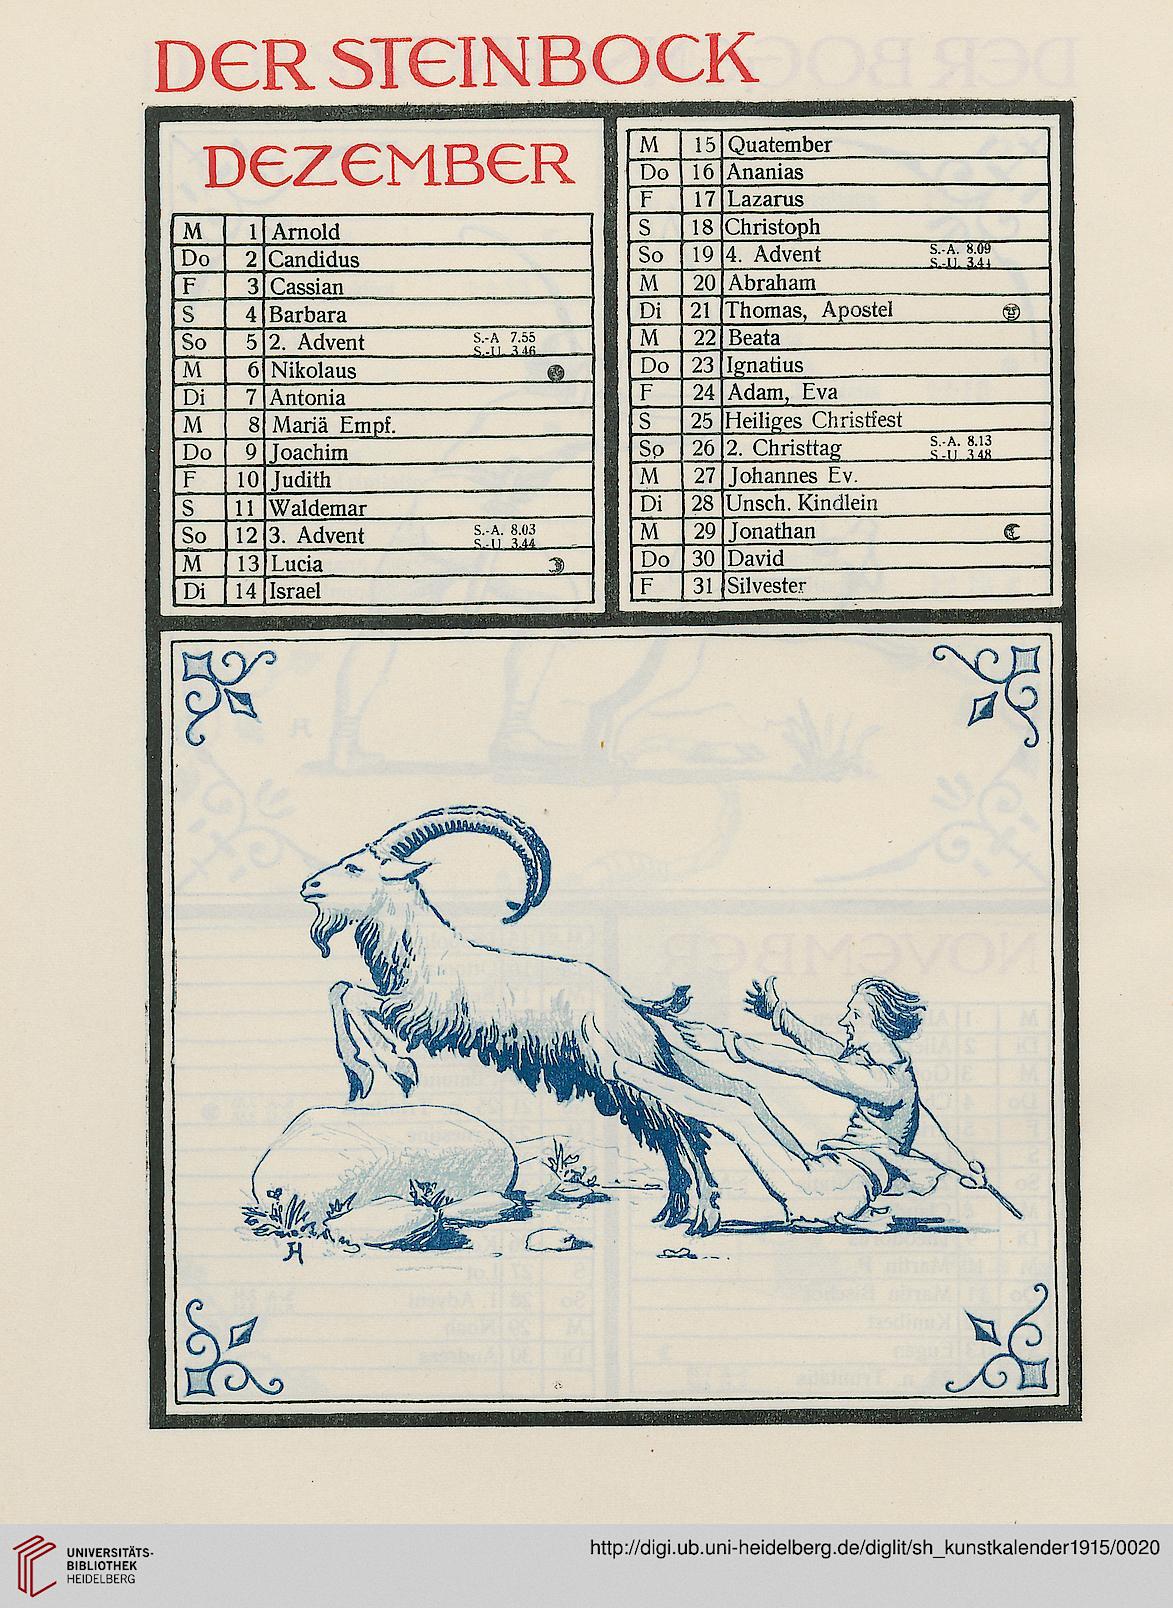 DER STEINBOCK
DEZEMBER
M 1 Arnold
Do 2 Candidus
F 3 Cassian
S 4 Barbara
So 5 2. Advent S.-A 7.55
S.-U. 3.46
M 6 Nikolaus
Di 7 Antonia
M 8 Mariä Empf.
Do 9 Joachim
F 10 Judith
S 11 Waldemar
So 12 3. Advent S.-A. 8.03
S.-U. 3.44
M 13 Lucia
Di 14 Israel
M 15 Quatember
Do 16 Ananias
F 17 Lazarus
S 18 Christoph
So 19 4. Advent S.-A. 8.09
S.-U. 3.44
M 20 Abraham
Di 21 Thomas, Apostel
M 22 Beata
Do 23 Ignatius
F 24 Adam, Eva
S 25 Heiliges Christfest
So 26 2. Christtag S.-A. 8.13
S.-U 3.48
M 27 Johannes Ev.
Di 28 Unsch. Kindlein
M 29 Jonathan
Do 30 David
F 31 Silvester
UNIVERSITÄTS-
BIBLIOTHEK
HEIDELBERG
http://digi.ub.uni-heidelberg.de/diglit/sh_kunstkalender1915/0020